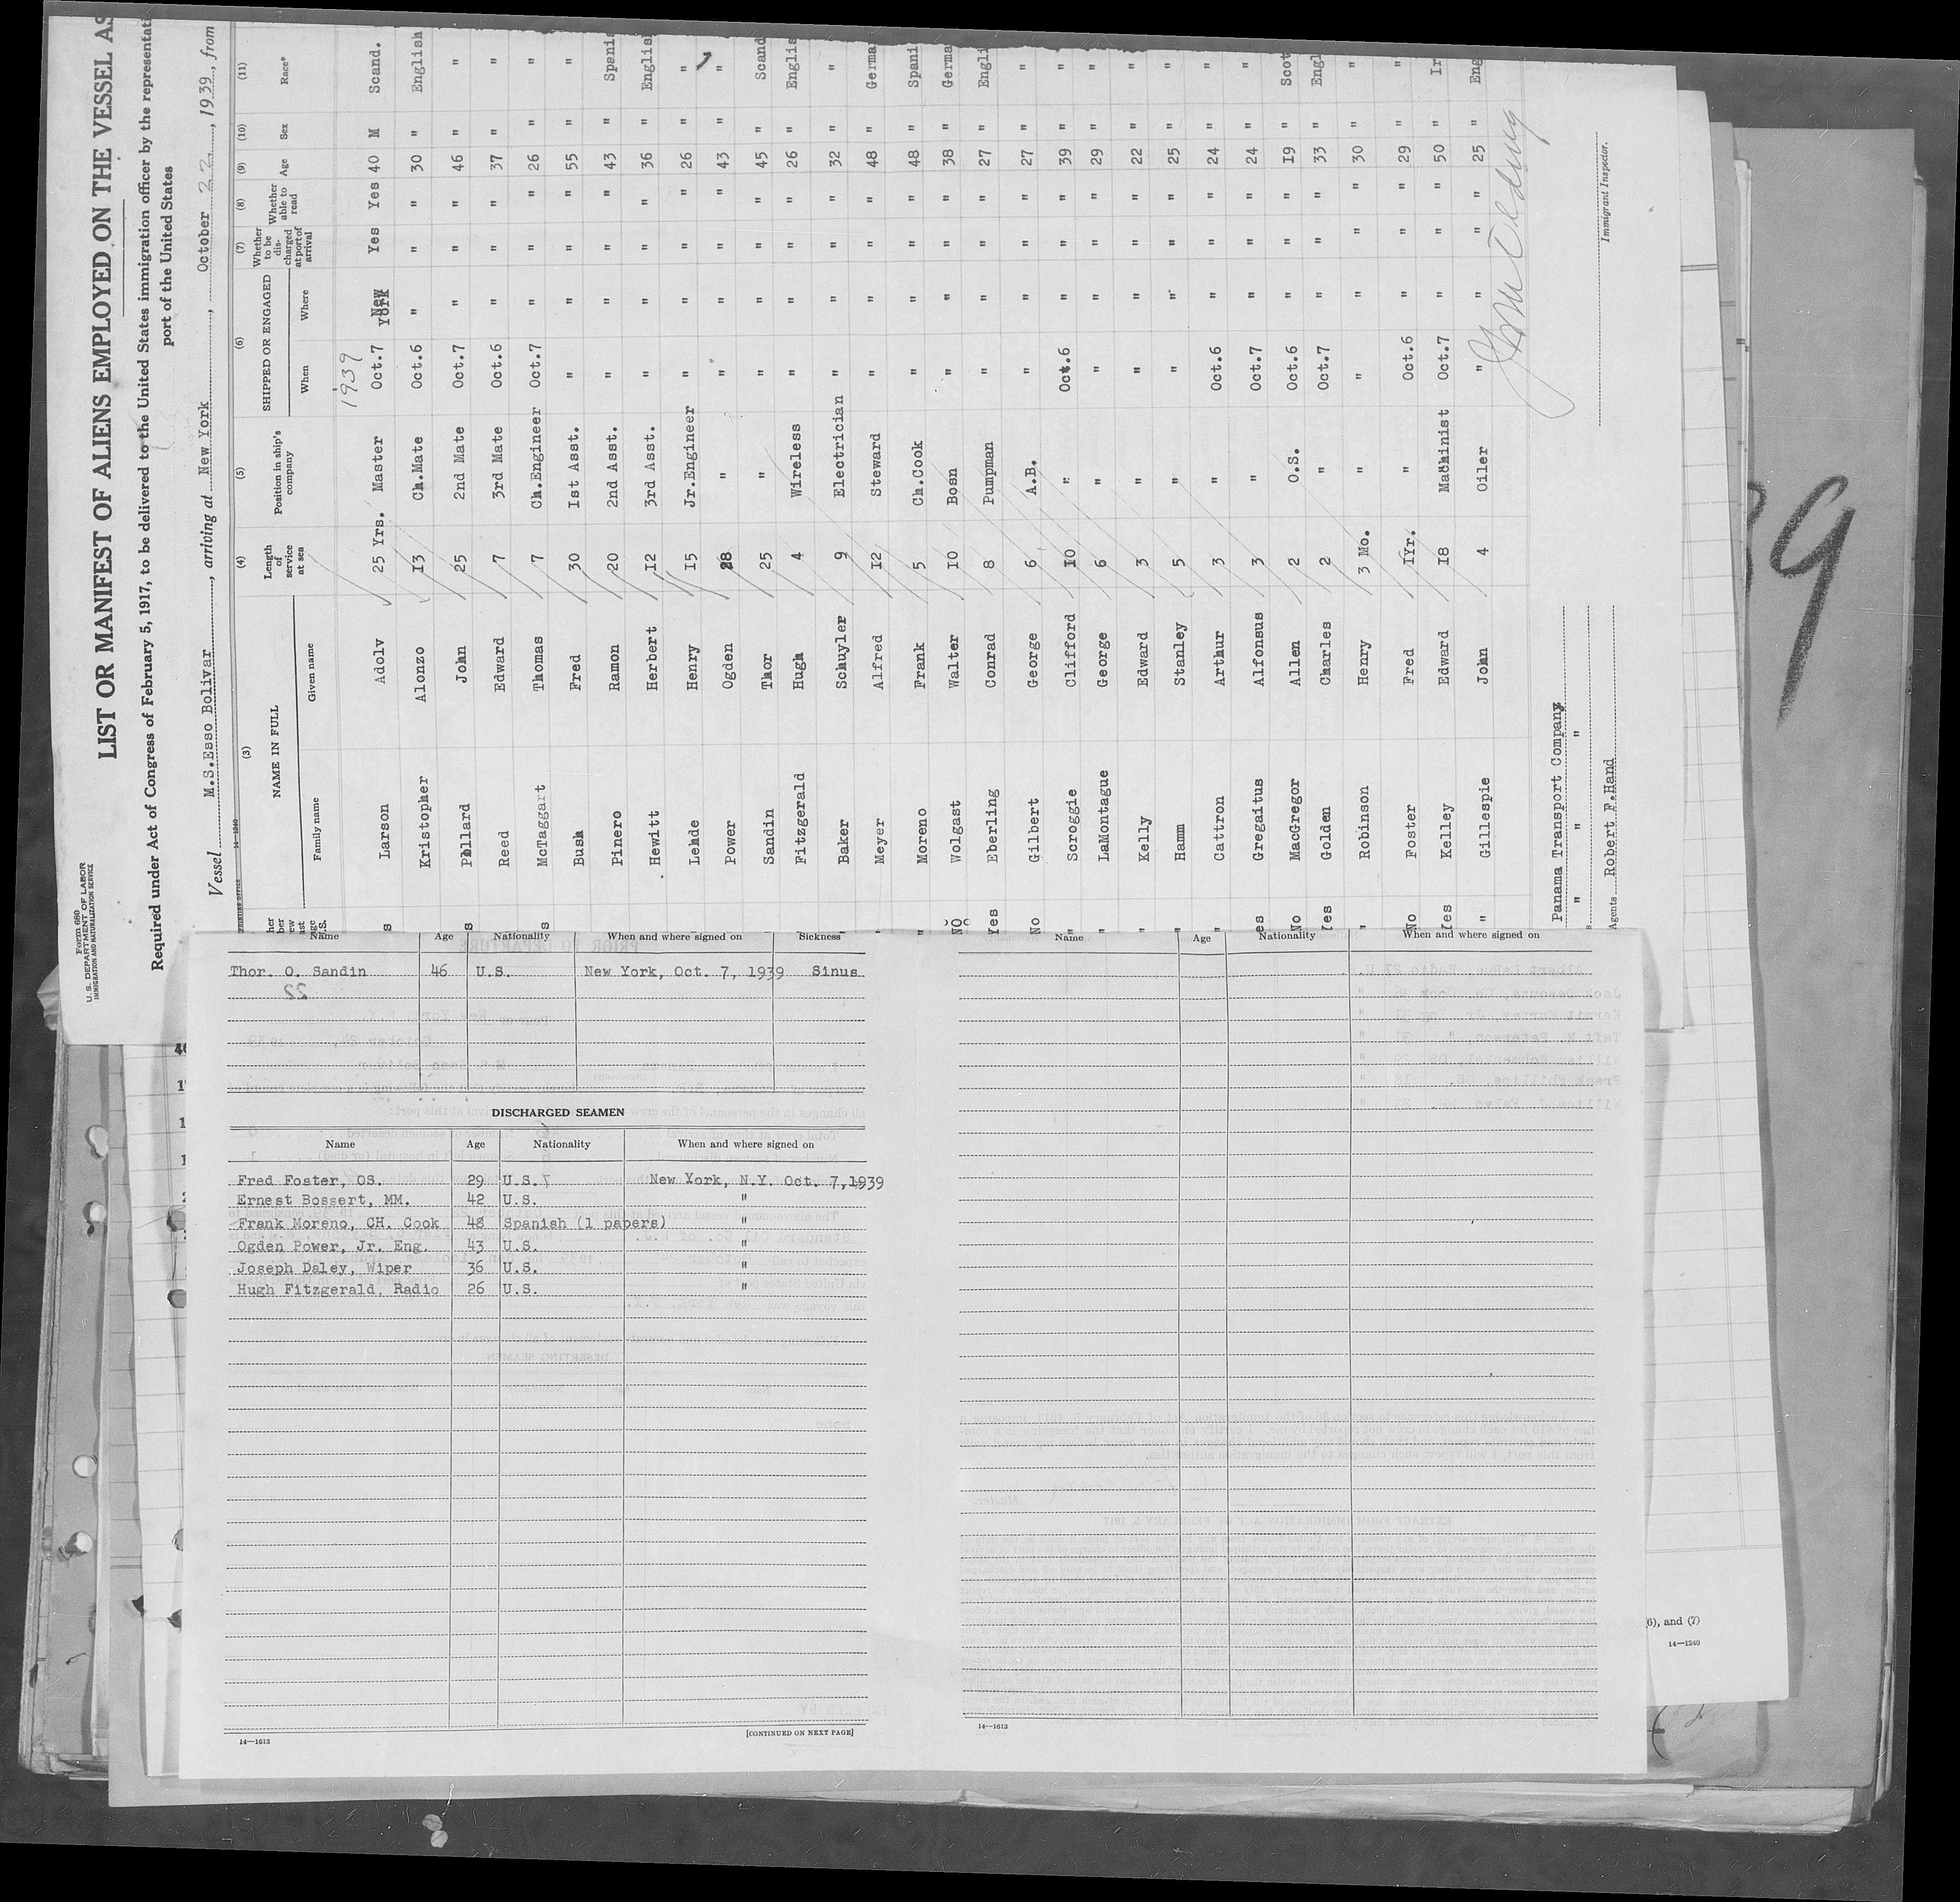 Form 680
U. S. DEPARTMENT OF LABOR
IMMIGRATION AND NATURALIZATION SERVICE
LIST OR MANIFEST OF ALIENS EMPLOYED ON THE VESSEL AS
Required under Act of Congress of February 5, 1917, to be delivered to the United States immigration officer by the representati
port of the United States
Vessel M.S.Esso Bolivar, arriving at New York, October 22, 1939, from
14—1240
(3) (4) (5) (6) (7) (8) (9) (10) (11)
NAME IN FULL Length of service at sea Position in ship's company SHIPPED OR ENGAGED Whether to be discharged at port of arrival Whether able to read Age Sex Race*
Family name Given name When Where
1939
Larson Adolv 25 Yrs. Master Oct.7 New York Yes Yes 40 M Scand.
Kristopher Alonzo 13 Ch.Mate Oct.6 " " " 30 " English
Pollard John 25 2nd Mate Oct.7 " " " 46 " "
Reed Edward 7 3rd Mate Oct.6 " " " 37 " "
McTaggart Thomas 7 Ch.Engineer Oct.7 " " " 26 " "
Bush Fred 30 1st Asst. " " " " 55 " "
Pinero Ramon 20 2nd Asst. " " " " 43 " Spanis
Hewitt Herbert 12 3rd Asst. " " " " 36 " English
Lehde Henry 15 Jr.Engineer " " " " 26 " "
Power Ogden 28 " " " " " 43 " "
Sandin Thor 25 " " " " " 45 " Scand
Fitzgerald Hugh 4 Wireless " " " " 26 " Englis
Baker Schuyler 9 Electrician " " " " 32 " "
Meyer Alfred 12 Steward " " " " 48 " Germa
Moreno Frank 5 Ch.Cook " " " " 48 " Spani
No Wolgast Walter 10 Bosn " " " " 38 " Germa
Yes Eberling Conrad 8 Pumpman " " " " 27 " Engli
No Gilbert George 6 A.B. " " " " 27 " "
" Scroggie Clifford 10 " Oct.6 " " " 39 " "
" LaMontague George 6 " " " " " 29 " "
" Kelly Edward 3 " " " " " 22 " "
" Hamm Stanley 5 " " " " " 25 " "
" Cattron Arthur 3 " Oct.6 " " " 24 " "
es Gregaitus Alfonsus 3 " Oct.7 " " " 24 " "
No MacGregor Allen 2 O.S. Oct.6 " " " 19 " Scot
Yes Golden Charles 2 " Oct.7 " " " 33 " Engl
" Robinson Henry 3 Mo. " " " " " 30 " "
No Foster Fred 1Yr. " Oct.6 " " " 29 " "
Yes Kelley Edward 18 Machinist Oct.7 " " " 50 " Ir
" Gillespie John 4 Oiler " " " " 25 " Eng
Panama Transport Company
" " "
Agents Robert F.Hand
Immigrant Inspector.
Name Age Nationality When and where signed on Sickness
Thor. O. Sandin 46 U.S. New York, Oct. 7, 1939 Sinus
DISCHARGED SEAMEN
Name Age Nationality When and where signed on
Fred Foster, OS. 29 U.S. New York, N.Y. Oct. 7,1939
Ernest Bossert, MM. 42 U.S. "
Frank Moreno, CH. Cook 48 Spanish (1 papers) "
Ogden Power, Jr. Eng. 43 U.S. "
Joseph Daley, Wiper 36 U.S. "
Hugh Fitzgerald, Radio 26 U.S. "
[CONTINUED ON NEXT PAGE]
14—1613
Name Age Nationality When and where signed on
14—1613
(6), and (7)
14—1240
39